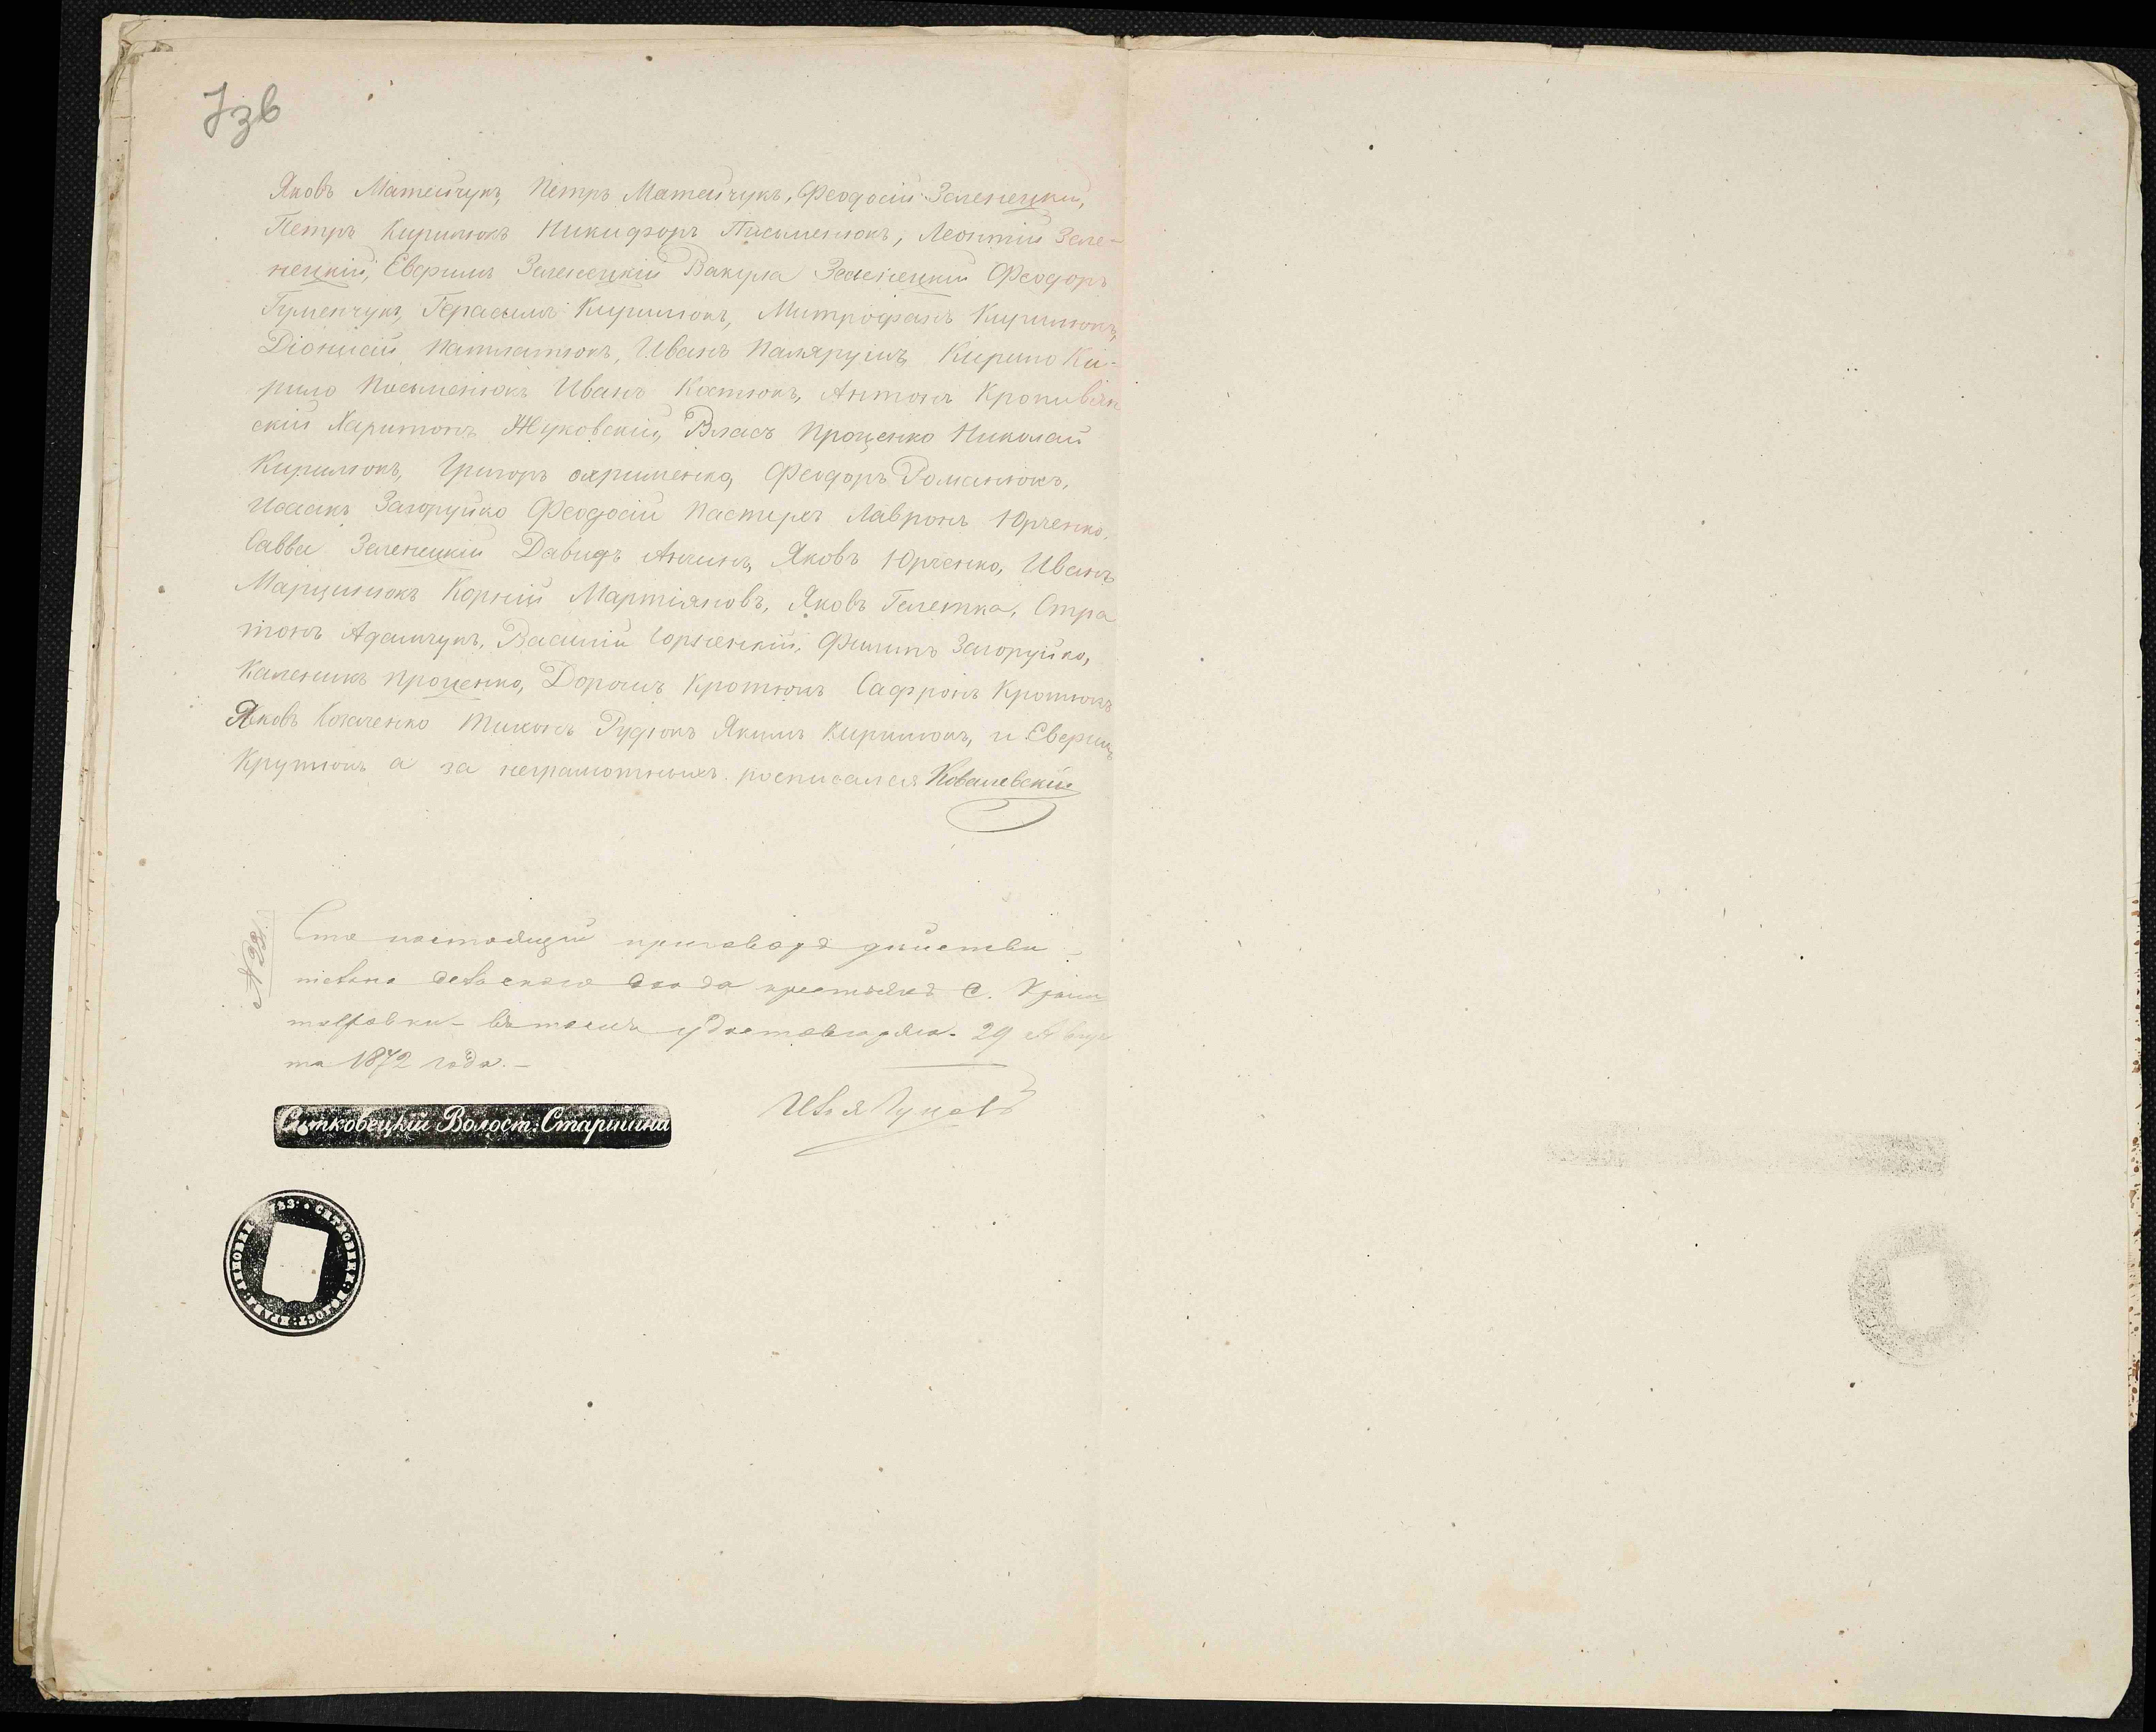 Яковъ Матейчукъ, Петръ Матейчукъ, Феодосій Зеленецкій,
Петръ Кирилюкъ Никифоръ Письменюкъ, Леонтій Зеле-
нецкій, Евфимъ Зеленецкій Вакула Зеленецкій Феодоръ
Гуменчукъ, Герасимъ Кирилюкъ, Митрофанъ Кирилюкъ,
Діонисій Иванъ Кирило Ки-
рило Письменюкъ Иванъ Костюкъ, Антонъ Кропивян
скій Харитонъ Жуковскій, Власъ Проценко Николай
Кирилюкъ, Григоръ охрименко, Феодоръ Романюкъ,
Исаакъ Загоруйко Феодосій Пастухъ Лавронъ Юрченко,
Савва Зеленецкій Давидъ Яковъ Юрченко, Иванъ
Марцинюкъ Корній Мартіяновъ, Яковъ Гелетка, Стра
тонъ Адамчукъ, Василій Филипъ Загоруйко,
Каленикъ Проценко, Дорошъ Кротюкъ Сафронъ Кротюкъ
Яковъ Тихонъ Рудюкъ Якимъ Кирилюкъ, и
а за неграмотныхъ росписался Ковалевскій
№ 23.
Что настоящій приговоръ дѣйстви
тельно сельскаго схода крестьянъ с.
въ томъ удостовѣряю. 29 Авгус
та 1872 года.-
Ситковецкій Волост: Старшина